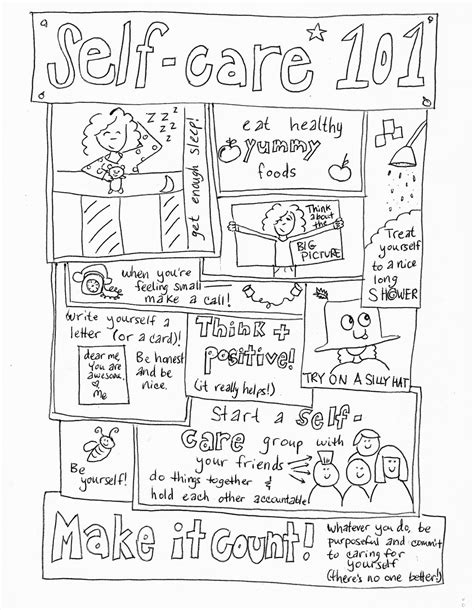 Self-care* 101
z z z z
get enough sleep!
eat healthy
yummy
foods
Think
about the
BIG
PICTURE
Treat
yourself
to a nice
long
SHOWER
when you're
feeling small
make a call!
Write yourself a
letter (or a card)!
dear me,
you are
awesome.
♡
Me
Be honest
and be
nice.
Think +
positive!
(it really helps!)
TRY ON A SILLY HAT
Be
yourself!
Start a self-
care group with
your friends
do things together &
hold each other accountable
Make it count!
whatever you do, be
purposeful and commit
to caring for
yourself
(there's no one better!)